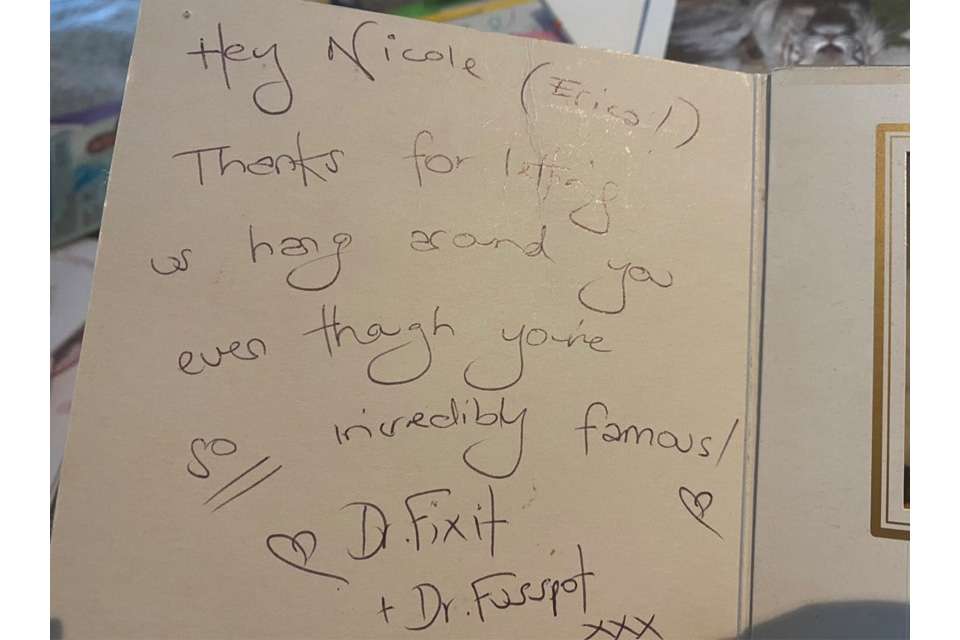 Hey Nicole (Erica!)
Thanks for letting
us hang around you
even though you're
so incredibly famous!
Dr. Fixit
+ Dr. Fusspot
xxx